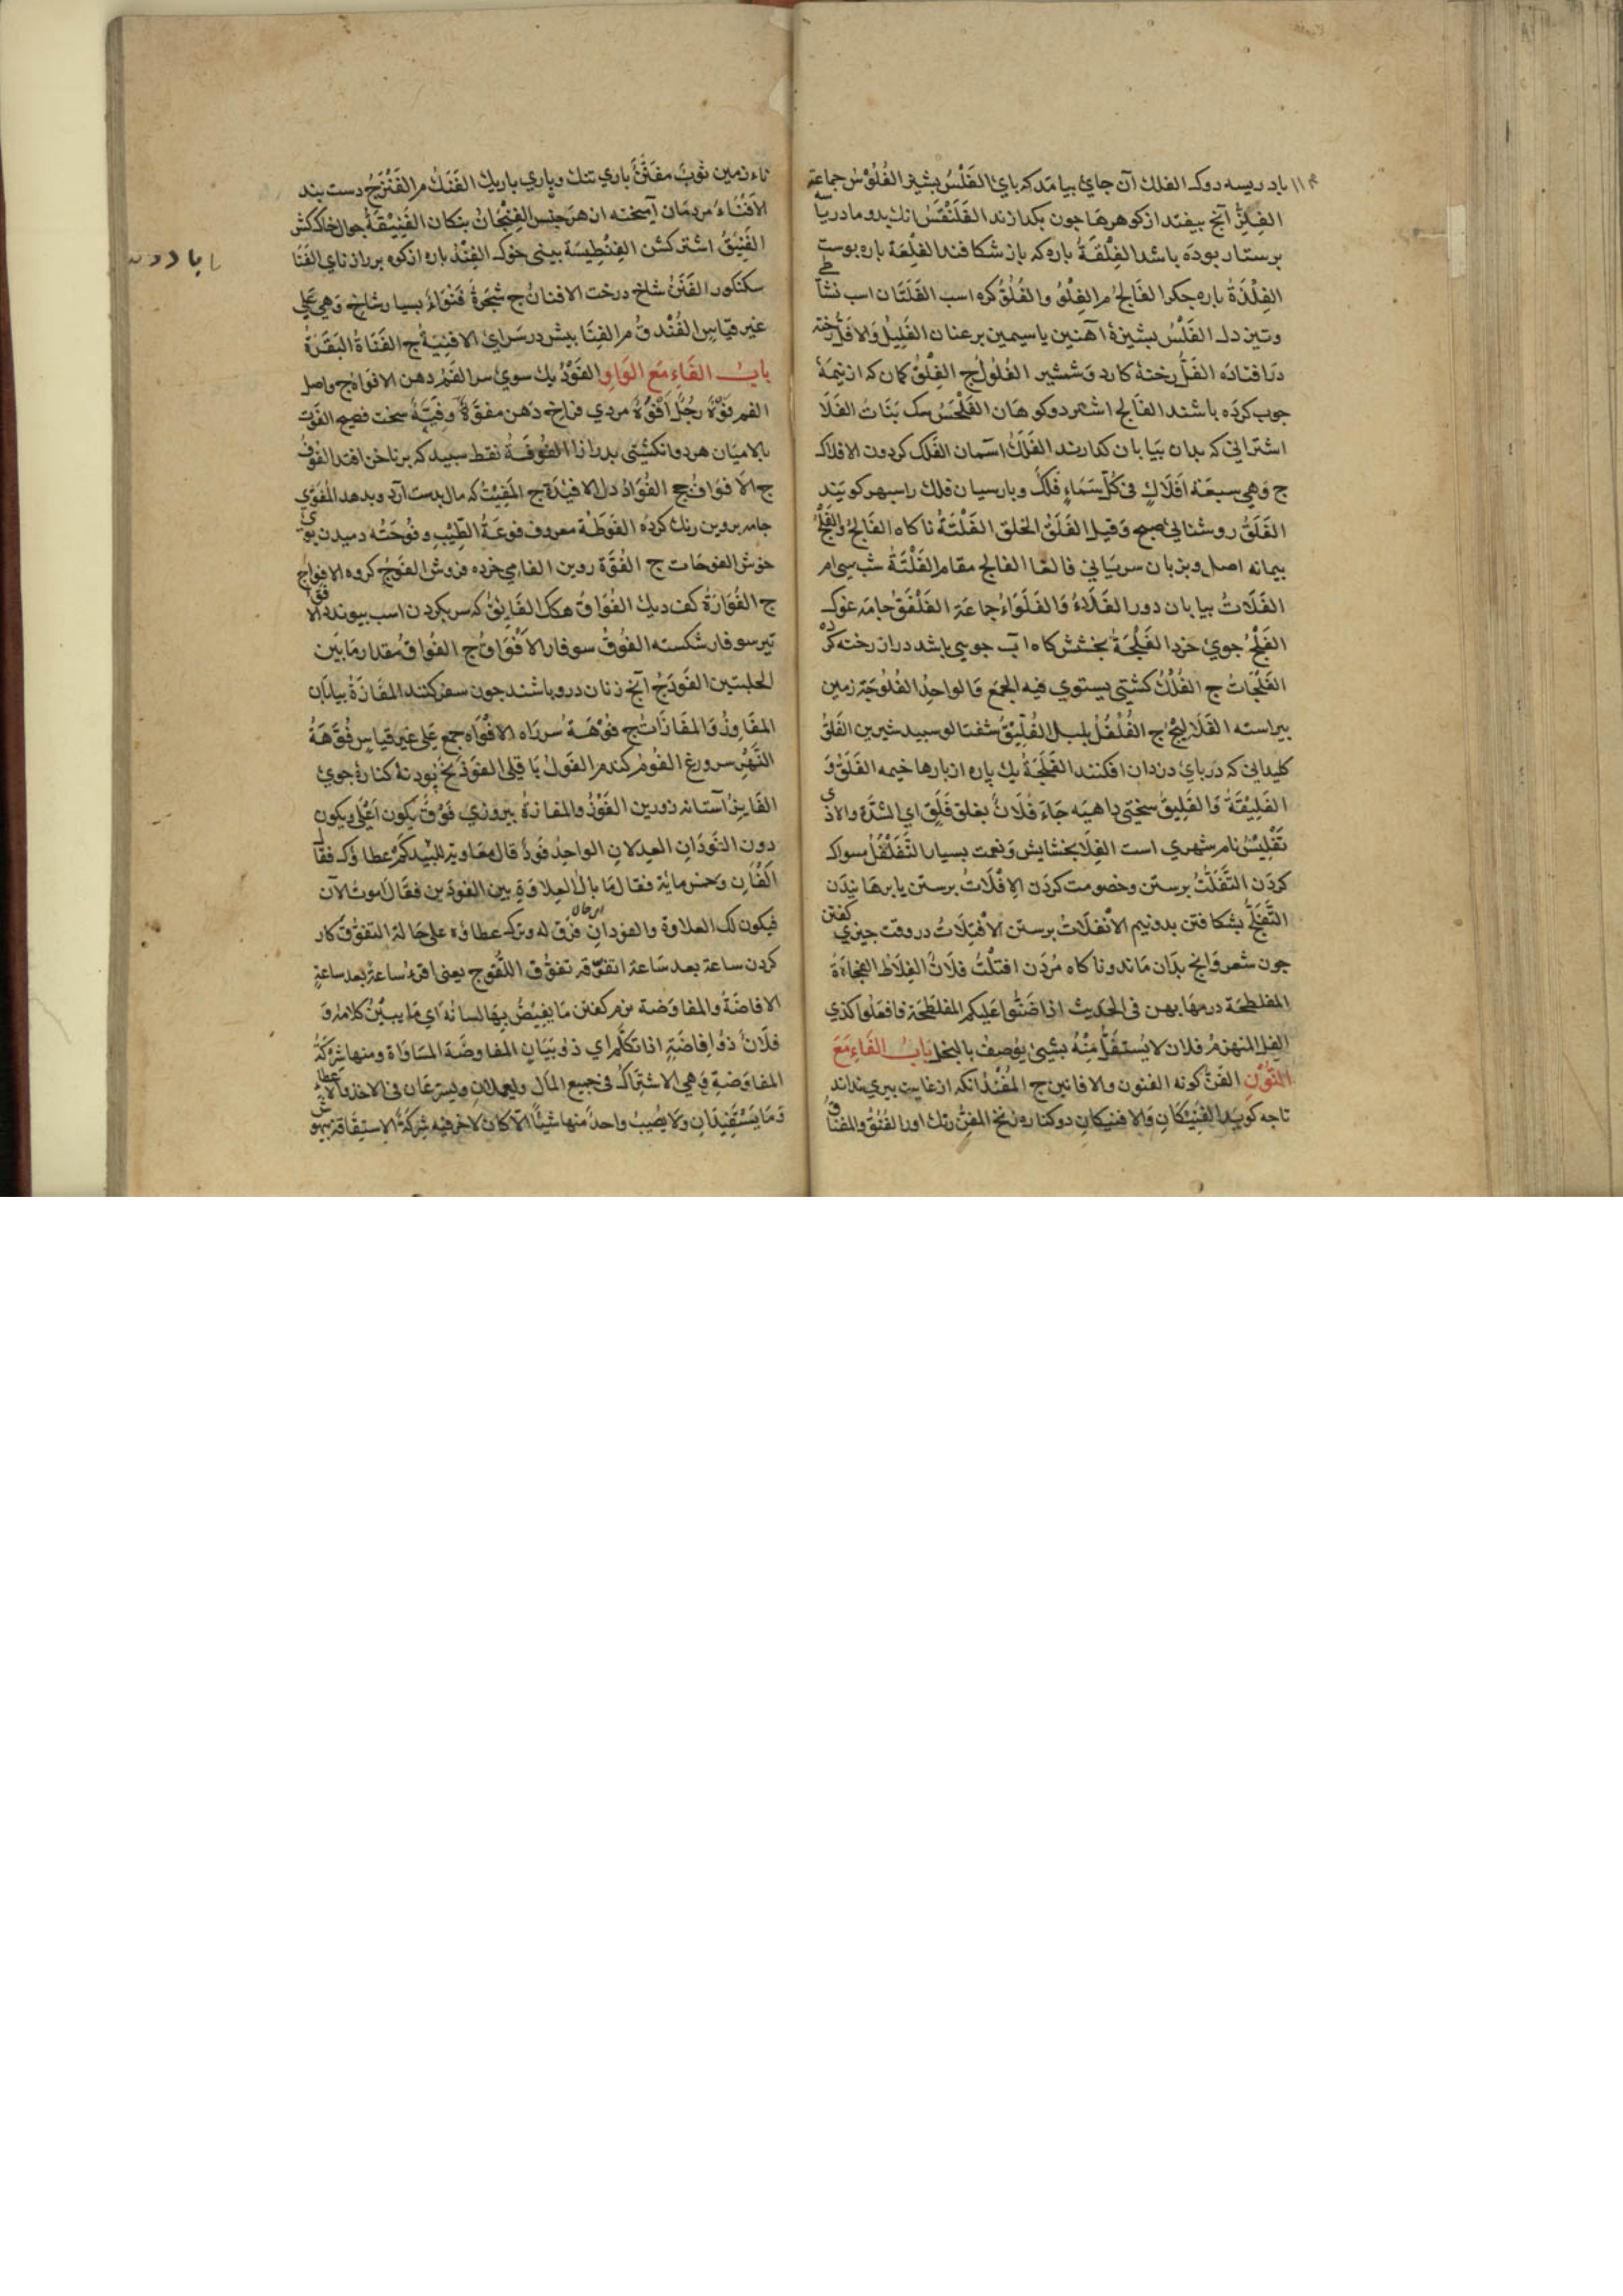 باد ريسه دوك الفلك آن جاي بيامد كه باي الفَلْسُ بشيز الفُلُوْسُ جماعة
الفِلِزُّ آنچ بيفتد از كوهرها جون بكدازند الفَلَنْقَسُ انك بدو مادر
برستار بوده باشد الفِلْقَةُ باره كه باز شكافند الفِلْعَة باره بوست
الفِلْذَةُ باره جكر الفَالِجُ م الفِلْوُ والفُلُوُّ كره اسب الفَلَتَان اسب
وتيز دل الفَلْسُ بشيزۀ آهنين يا سيمين بر عنان الفَلِيْلُ والافَلُّ
در افتاده الفَلُّ رخنۀ كارد وشمشير الفُلُولُ ج الفِلْقُ كمان كه از نيمۀ
جوب كرده باشند الفَالِج اشتر دو كوهان الفَلْحَسُ سك بَنَاتُ الفَلَا
اشتراني كه بدان بيابان كذارند الفَلَكُ آسمان الفَلَك كردون الافلاك
ج وَهي سبعَة افلَاكٍ فى كُلّ سَمَاءٍ فَلَكٌ وبارسيان فلك راسبهر كويند
الفَلَقُ روشنائي صبح وَقيل الفَلَقُ الخلق الفَلْتَةُ ناكاه الفَالِجُ والفِلْجُ
بيمانه اصل وبزبان سرياني فالغا الفالج مقامر الفَلْتَةُ شب سي ام
الفَلَاتُ بيابان دور الفَلَاةُ وَالفَلَوَاتُ جماعَة الفَلْفَقُ جامۀ غوك
الفَلْجُ جوي خرد الفَلْجَةُ بخشش كاه آب جويي باشد دران رخته كر
الفَلْجَاتُ ج الفُلْكُ كشتي يستوي فيه الجمع وَالواحِدُ الفُلُوجَة زمين
بيراسته الفَلَاليجُ ج الفُلْفُلُ بلبل الفُلَّيْقُ شفتالو سبيد شيرين الفَلَقُ
كليداني كه درباي دزدان افكنند الفَلِجَةُ يك باره از بارها خيمه الفَلَقُ وَ
الفَلِيْقَةُ وَالفَلِيقُ سختي داهيَه جَاءَ فُلَانٌ بفلق فَلِقٍ اي الشدَّة والاذي
تَفْلِيْسُ نام شهري است الفِلَا بخشايش وَنعمت بسيار التَّفَلْفُلُ مسواك
كردن التَّفَلُّتُ برستن وخصومت كردن الاِفْلَاتُ برستن يا برهانيدن
التَّفَلُّجُ بشكافتن بدو نيم الاْنفِلَاتُ برستن الاْفتِلَاتُ در وقت جيزي كفتن
جون شعر وَانچ بدان ماند وناكاه مُردَن افتُلْتُ فلَانٌ الفِلَاطُ الفُجَاءَةُ
المفلطحَة درمها بهن فى الحديث اذا ضَنُّوا عَلَيكم المفلطحَة فافعَلوا كذي
الفِل المنهزمُ فلان لا يُستقَلُّ مِنْهُ بشيئ يوُصفُ بالبخل بَابُ الفَاءِ مَعَ
النُّوْنِ الفَنُّ كونه الفنون والافانين ج المُفْنِدُ انكه از غايت بيري نداند
تا چه كويد الفَنِيْكَانِ وَالافنيكانِ دو كناره زنخ المِفَنُّ رنك اور الفُنُقُ والمفناق
ثوبٌ مفَنَّنٌ باري تنك وباري باريك الفَنَكُ م الفَنْزَجُ دست بند
الاَفْنَاءُ مردمان آميخته از هر جنس الفِنْجَانُ بنكان الفَنِيْقَةُ جوال خاك كش
الفَنِيْقُ اشتر كشن الفِنْطِيسَة بيني خوك الفِنْدُ باره از كوه بر دراز ناي الفَنَا
سكنكور الفَنَنُ شاخ درخت الافنانُ ج شَجَرةٌ فَنْوَاءُ بسيار شاخ وَهي عَلى
غير قياسٍ الفُنْدقُ م الفِنَا بيش در سَراي الافنِيَةُ ج الفَنَاةُ البَقَرَةُ
بَابُ الفَاءِ مَع الوَاوِ الفَوْدُ يك سوي سر الفَمُ دهن الافوَاهُ ج وَاصل
الفم فوْهٌ رجُلٌ اَفْوَهُ مردي فراخ دهن مفوَّهٌ وَفَيِّهٌ سخت فصيح الفَوْت
بالا ميان هر دو انكشتي بدرازا الفُوفَةُ نقط سبيد كه بر ناخن افتد الفُوْفُ
ج الاَفوَافُ جج الفُوَادُ دل الافيدَة ج المُفِيْتُ كه مال بدست آرد وبدهد المُفَوَّي
جامه بروين رنك كردَه الفَوَطَة معروف فوعَةُ الطِّيْبِ وفُوْحَتُه دميدن بوي
خوش الفوحَات ج الفُوَّة روين الفامي خرده فروش الفَوْجُ كروه الافوَاج
ج الفُوَارَةُ كف ديك الفُوَاقُ هكك الفَايِقُ كه سر بكردن اسب بيوندد الافوق
تير سوفار شكسته الفُوْقُ سوفار الاَفْوَاقُ ج الفُوَاقُ مقدار مَا بَين
الحلبتين الفَوْدَجُ آنچ زنان درو باشند جون سفر كنند المفَازَةُ بيابان
المفَاوِزُ وَالمفَازَاتُ ج فُوْهَةُ سر راه الافْوَاه جمع عَلى غير قياسٍ فُوَّهَةُ
النَّهْرِ سر ورغ الفُوْمُ كندم الفُوْلُ باقِلى الفَوْذَنج پودنۀ كنارۀ جوي
الفَايزُ آستانه زورين الفَوْزُ والمفازةُ بيروزي فَوْقَ يَكون اَعْلَى ويكون
دون الفَوْدَانِ العِدلانِ الواحِدُ فَوْدٌ قال معَاوية للبَيْد كَمْ عطاؤك فقال
اَلفَانِ وَخمس مائة فقال مَا بال العِلاوةِ بين الفودَين فقال اموتُ الآن
فيكون لك العلاوة والفودانِ فرَق له وترك عطاؤه على حالة التفوُّق كار
كردن ساعة بعد سَاعة اتفوَّقه تفوُّق اللَّقُوح يعني اقرءُ ساعة بعد ساعةٍ
الافاضَةُ والمفاوَضة نرم كفتن مَا يفِيْضُ بها لسانُهُ اَي مَا يبيِّنُ كلامُهُ وَ
فلَانٌ ذوُ اِفاضَةٍ اذا تكَلَّم اي ذو بيَانٍ المفاوضَة المسَاوَاة ومنها شركَةُ
المفاوَضةِ وَهي الاشتِراكُ فى جميع المَال وَليعملانِ وليسرعَان في الاخذ والاعطاء
وَمَا يَسْتَفِيدَانِ وَلا يُصيبُ واحدٌ منها شيئًا الّا كانَ لاخر فيه شِركَةٌ الاستِفَاقة بهوش